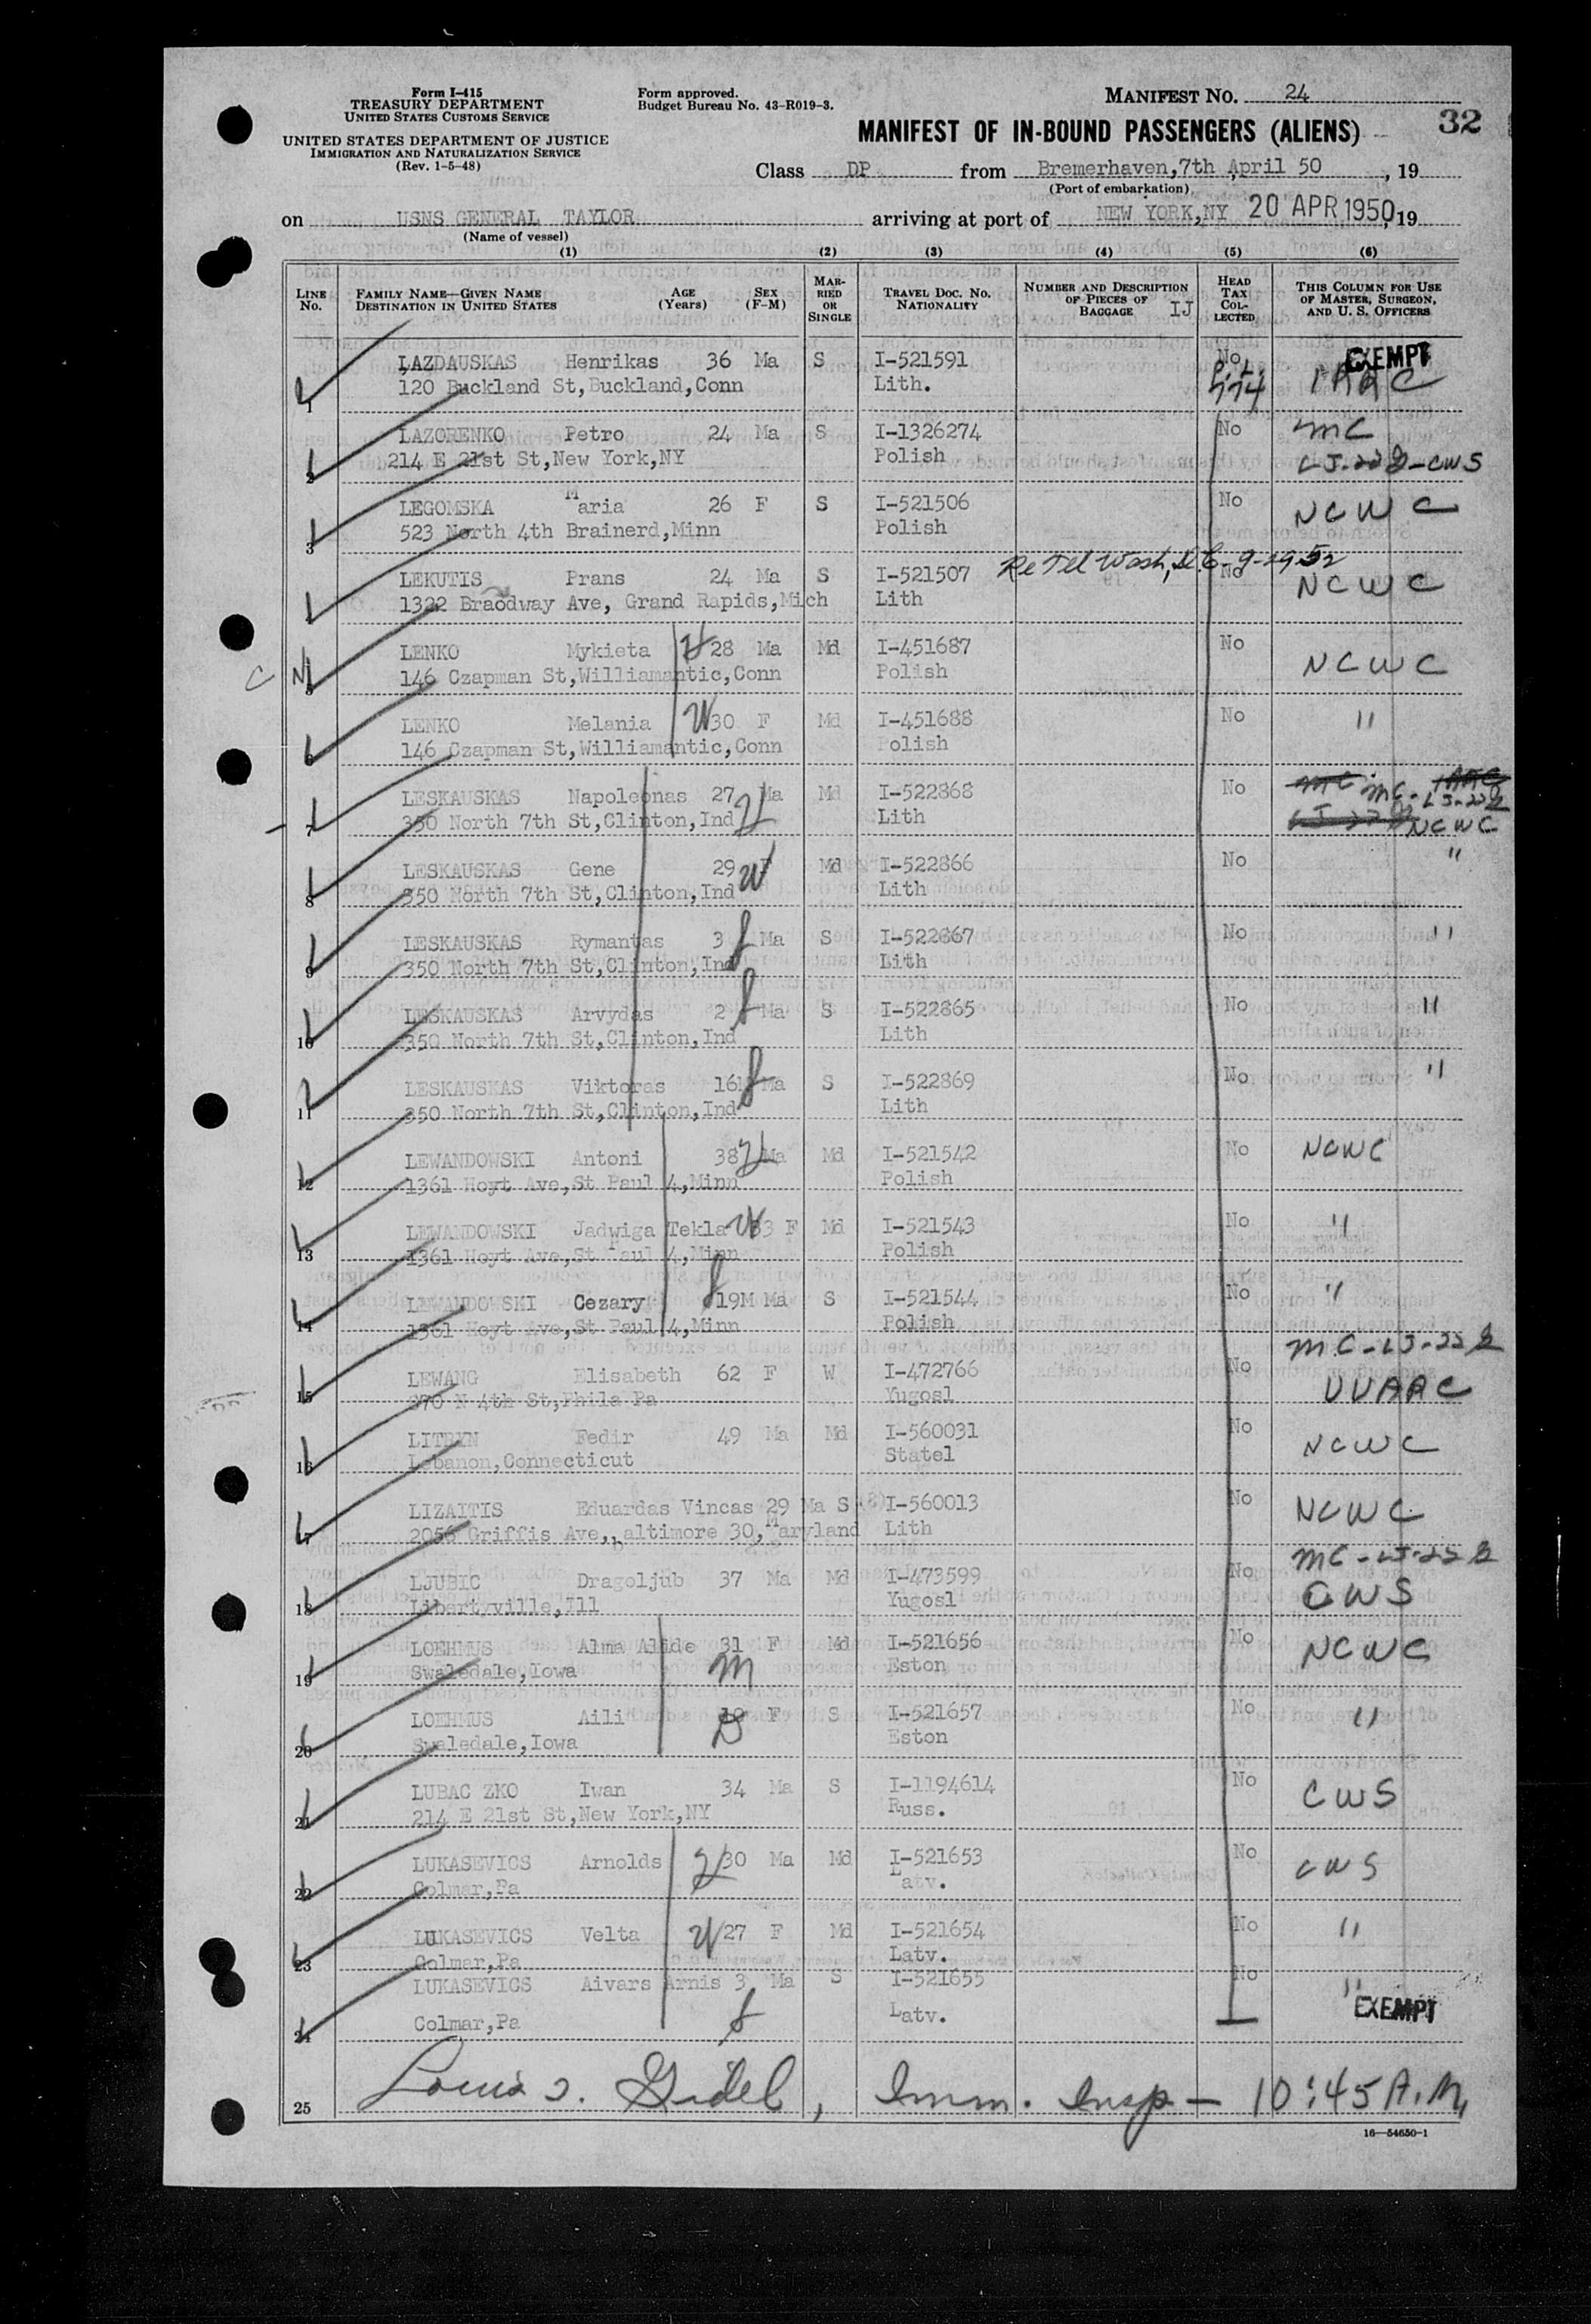 Form I-415
TREASURY DEPARTMENT
UNITED STATES CUSTOMS SERVICE
UNITED STATES DEPARTMENT OF JUSTICE
IMMIGRATION AND NATURALIZATION SERVICE
(Rev. 1-5-48)
Form approved.
Budget Bureau No. 43-R019-3.
MANIFEST No. 24
32
MANIFEST OF IN-BOUND PASSENGERS (ALIENS)
Class DP from Bremerhaven,7th April 50, 19
(Port of embarkation)
on USNS GENERAL TAYLOR arriving at port of NEW YORK,NY 20 APR 1950, 19
(Name of vessel)
(1) (2) (3) (4) (5) (6)
LINE No. FAMILY NAME—GIVEN NAME DESTINATION IN UNITED STATES AGE (Years) SEX (F-M) MARRIED OR SINGLE TRAVEL DOC. No. NATIONALITY NUMBER AND DESCRIPTION OF PIECES OF BAGGAGE IJ HEAD TAX COLLECTED THIS COLUMN FOR USE OF MASTER, SURGEON, AND U. S. OFFICERS
LAZDAUSKAS Henrikas 36 Ma S I-521591 No EXEMPT
1 120 Buckland St,Buckland,Conn Lith. P.L. 774 IRRC
LAZORENKO Petro 24 Ma S I-1326274 No MC
2 214 E 21st St,New York,NY Polish LJ-228-CWS
LEGOMSKA Maria 26 F S I-521506 No NCWC
3 523 North 4th Brainerd,Minn Polish
Re Tel Wash, D.C. 9-29-52
LEKUTIS Prans 24 Ma S I-521507 No NCWC
1322 Braodway Ave, Grand Rapids,Mich Lith
LENKO Mykieta H 28 Ma Md I-451687 No NCWC
C N 146 Czapman St,Williamantic,Conn Polish
LENKO Melania W 30 F Md I-451688 No "
6 146 Czapman St,Williamantic,Conn Polish
LESKAUSKAS Napoleonas 27 Ma Md I-522868 No MC-LJ-228
7 350 North 7th St,Clinton,Ind H Lith NCWC
LESKAUSKAS Gene 29 W F Md I-522866 No "
8 350 North 7th St,Clinton,Ind Lith
LESKAUSKAS Rymantas 3 Ma S I-522867 No "
9 350 North 7th St,Clinton,Ind Lith
LESKAUSKAS Arvydas 2 Ma S I-522865 No "
10 350 North 7th St,Clinton,Ind Lith
LESKAUSKAS Viktoras 16M Ma S I-522869 No "
11 350 North 7th St,Clinton,Ind Lith
LEWANDOWSKI Antoni 38 H Ma Md I-521542 No NCWC
12 1361 Hoyt Ave,St Paul 4,Minn Polish
LEWANDOWSKI Jadwiga Tekla W 33 F Md I-521543 No "
13 1361 Hoyt Ave,St Paul 4,Minn Polish
LEWANDOWSKI Cezary 19M Ma S I-521544 No "
14 1361 Hoyt Ave,St Paul 4,Minn Polish
LEWANG Elisabeth 62 F W I-472766 No MC-LJ-228
15 370 N 4th St,Phila Pa Yugosl UUARC
LITRYN Fedir 49 Ma Md I-560031 No NCWC
16 Lebanon,Connecticut Statel
LIZAITIS Eduardas Vincas 29 Ma S I-560013 No NCWC
17 2056 Griffis Ave,,baltimore 30,Maryland Lith
LJUBIC Dragoljub 37 Ma Md I-473599 No MC-LJ-228
18 Libertyville,Ill Yugosl CWS
LOEHMUS Alma Alide 31 F Md I-521656 No NCWC
19 Swaledale,Iowa M Eston
LOEHMUS Aili 10 F S I-521657 No "
20 Swaledale,Iowa D Eston
LUBAC ZKO Iwan 34 Ma S I-1194614 No CWS
21 214 E 21st St,New York,NY Russ.
LUKASEVICS Arnolds H 30 Ma Md I-521653 No CWS
22 Colmar,Pa Latv.
LUKASEVICS Velta W 27 F Md I-521654 No "
23 Colmar,Pa Latv.
LUKASEVICS Aivars Arnis 3 Ma S I-521655 No "
24 Colmar,Pa Latv. EXEMPT
25 Louis J. Gidel, Imm. Insp — 10:45 A.M.
16—54650-1